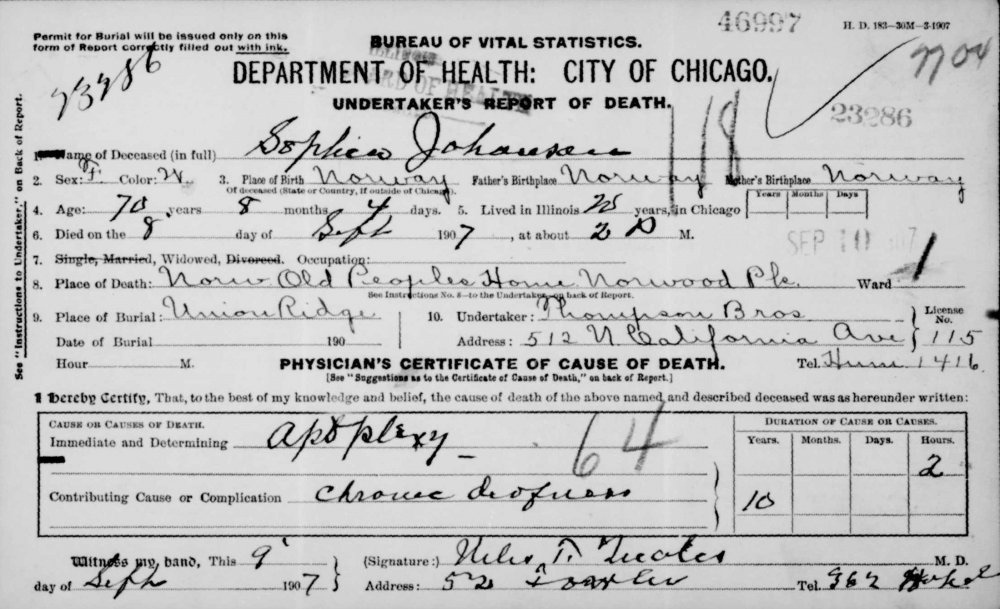 46997
H. D. 183—30M—3-1907
Permit for Burial will be issued only on this
form of Report correctly filled out with ink.
7704
BUREAU OF VITAL STATISTICS.
23286
DEPARTMENT OF HEALTH: CITY OF CHICAGO.
UNDERTAKER'S REPORT OF DEATH.
118
23286
See "Instructions to Undertaker," on Back of Report.
1. Name of Deceased (in full) Sophia Johansen
2. Sex: F. Color: W. 3. Place of Birth Norway Father's Birthplace Norway Mother's Birthplace Norway
Of deceased (State or Country, if outside of Chicago).
4. Age: 70 years 8 months 4 days. 5. Lived in Illinois 25 years, in Chicago Years Months Days
6. Died on the 8 day of Sept 1907, at about 2 P M.
SEP 10 1907
7. Single, Married, Widowed, Divorced. Occupation:
8. Place of Death: Norw Old Peoples Home Norwood Pk. Ward 1
See Instructions No. 8—to the Undertaker—on back of Report.
9. Place of Burial: Union Ridge 10. Undertaker: Thompson Bros License No.
Date of Burial 190 Address: 512 N California Ave 115
Hour M. PHYSICIAN'S CERTIFICATE OF CAUSE OF DEATH. Tel. Hum. 1416
[See "Suggestions as to the Certificate of Cause of Death," on back of Report.]
I hereby Certify, That, to the best of my knowledge and belief, the cause of death of the above named and described deceased was as hereunder written:
CAUSE OR CAUSES OF DEATH. DURATION OF CAUSE OR CAUSES.
Immediate and Determining Apoplexy 64 Years. Months. Days. Hours.
2
Contributing Cause or Complication Chronic deafness 10
Witness my hand, This 9 (Signature:) Niles T. M. D.
day of Sept 1907 Address: 52 Tel. 362